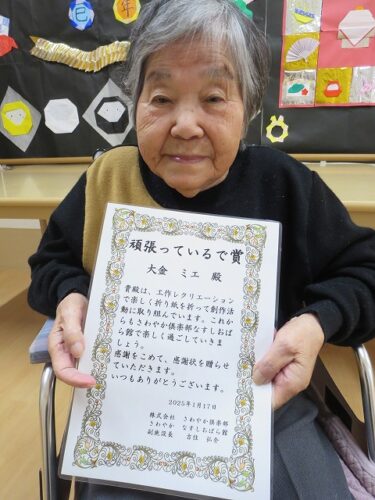 巳
年
頑張っているで賞
大金 ミエ 殿
貴殿は、工作レクリエーション
で楽しく折り紙を折って創作活
動に取り組んでいます。これか
らもさわやか倶楽部なすしおば
ら館で楽しく過ごしていきま
しょう。
感謝をこめて、感謝状を贈らせ
ていただきます。
いつもありがとうございます。
2025年1月17日
株式会社 さわやか倶楽部
さわやか なすしおばら館
副施設長 吉住 弘介